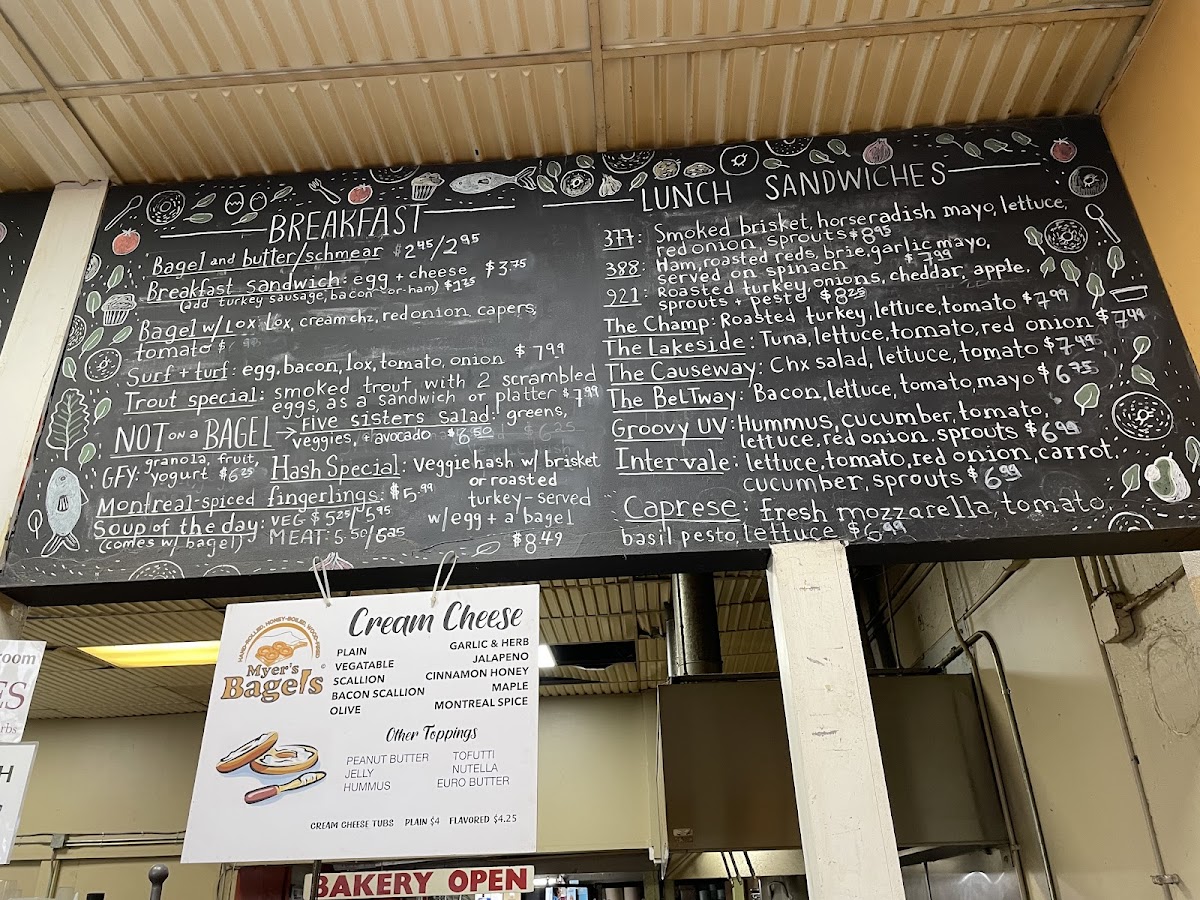 BREAKFAST
Bagel and butter/schmear $2.95/2.95
Breakfast sandwich: egg + cheese $3.75
(add turkey sausage, bacon -or- ham) $1.25
Bagel w/ Lox: Lox, cream chz, red onion capers,
tomato $
Surf + turf: egg, bacon, lox, tomato, onion $7.99
Trout special: smoked trout with 2 scrambled
eggs, as a sandwich or platter $7.99
NOT on a BAGEL → Five sisters salad: greens,
veggies, + avocado $6.50
GFY: granola, fruit,
yogurt $6.25
Hash Special: Veggie hash w/ brisket
or roasted
turkey-served
w/egg + a bagel
$8.49
Montreal-spiced fingerlings: $5.99
Soup of the day: VEG $5.25/5.95
(comes w/ bagel) MEAT: 5.50/6.25
LUNCH SANDWICHES
377: Smoked brisket, horseradish mayo, lettuce,
red onion, sprouts $8.95
388: Ham, roasted reds, brie, garlic mayo,
served on spinach $7.99
921: Roasted turkey, onions, cheddar, apple,
sprouts + pesto $8.25
The Champ: Roasted turkey, lettuce, tomato $7.99
The Lakeside: Tuna, lettuce, tomato, red onion $7.49
The Causeway: Chx salad, lettuce, tomato $7.49
The BeLTway: Bacon, lettuce, tomato, mayo $6.75
Groovy UV: Hummus, cucumber, tomato,
lettuce, red onion, sprouts $6.99
Intervale: lettuce, tomato, red onion, carrot,
cucumber, sprouts $6.99
Caprese: fresh mozzarella, tomato,
basil pesto, lettuce $6.99
HAND-ROLLED, HONEY-BOILED, WOOD-FIRED
Myer's
Bagels
Cream Cheese
PLAIN
VEGATABLE
SCALLION
BACON SCALLION
OLIVE
GARLIC & HERB
JALAPENO
CINNAMON HONEY
MAPLE
MONTREAL SPICE
Other Toppings
PEANUT BUTTER
JELLY
HUMMUS
TOFUTTI
NUTELLA
EURO BUTTER
CREAM CHEESE TUBS PLAIN $4 FLAVORED $4.25
BAKERY OPEN